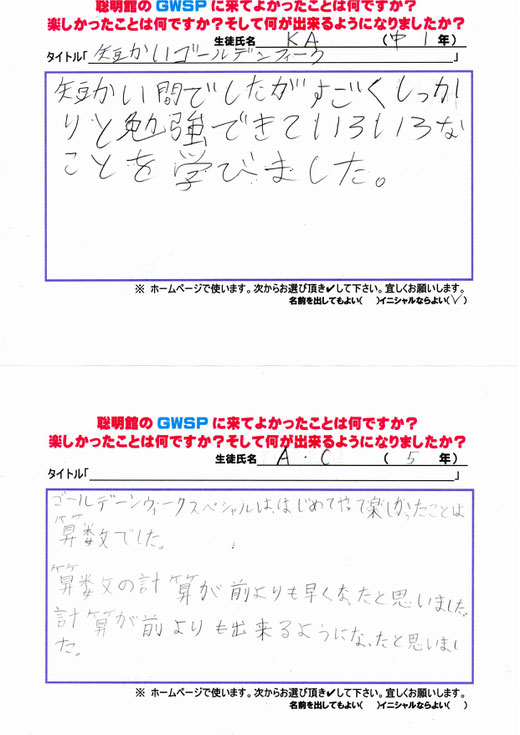 聡明館のGWSPに来てよかったことは何ですか？
楽しかったことは何ですか？そして何が出来るようになりましたか？
生徒氏名 KA （中1年）
タイトル「短かいゴールデンウィーク」
短かい間でしたがすごくしっか
りと勉強できていろいろな
ことを学びました。
※ ホームページで使います。次からお選び頂き✔して下さい。宜しくお願いします。
名前を出してもよい（ ）イニシャルならよい（✓）
聡明館のGWSPに来てよかったことは何ですか？
楽しかったことは何ですか？そして何が出来るようになりましたか？
生徒氏名 A・C （5年）
タイトル「 」
ゴールデーンウィークスペシャルは、はじめてやって楽しかったことは
算数でした。
算数の計算が前よりも早くなったと思いました。
計算が前よりも出来るようになったと思いまし
た。
※ ホームページで使います。次からお選び頂き✔して下さい。宜しくお願いします。
名前を出してもよい（ ）イニシャルならよい（ ）